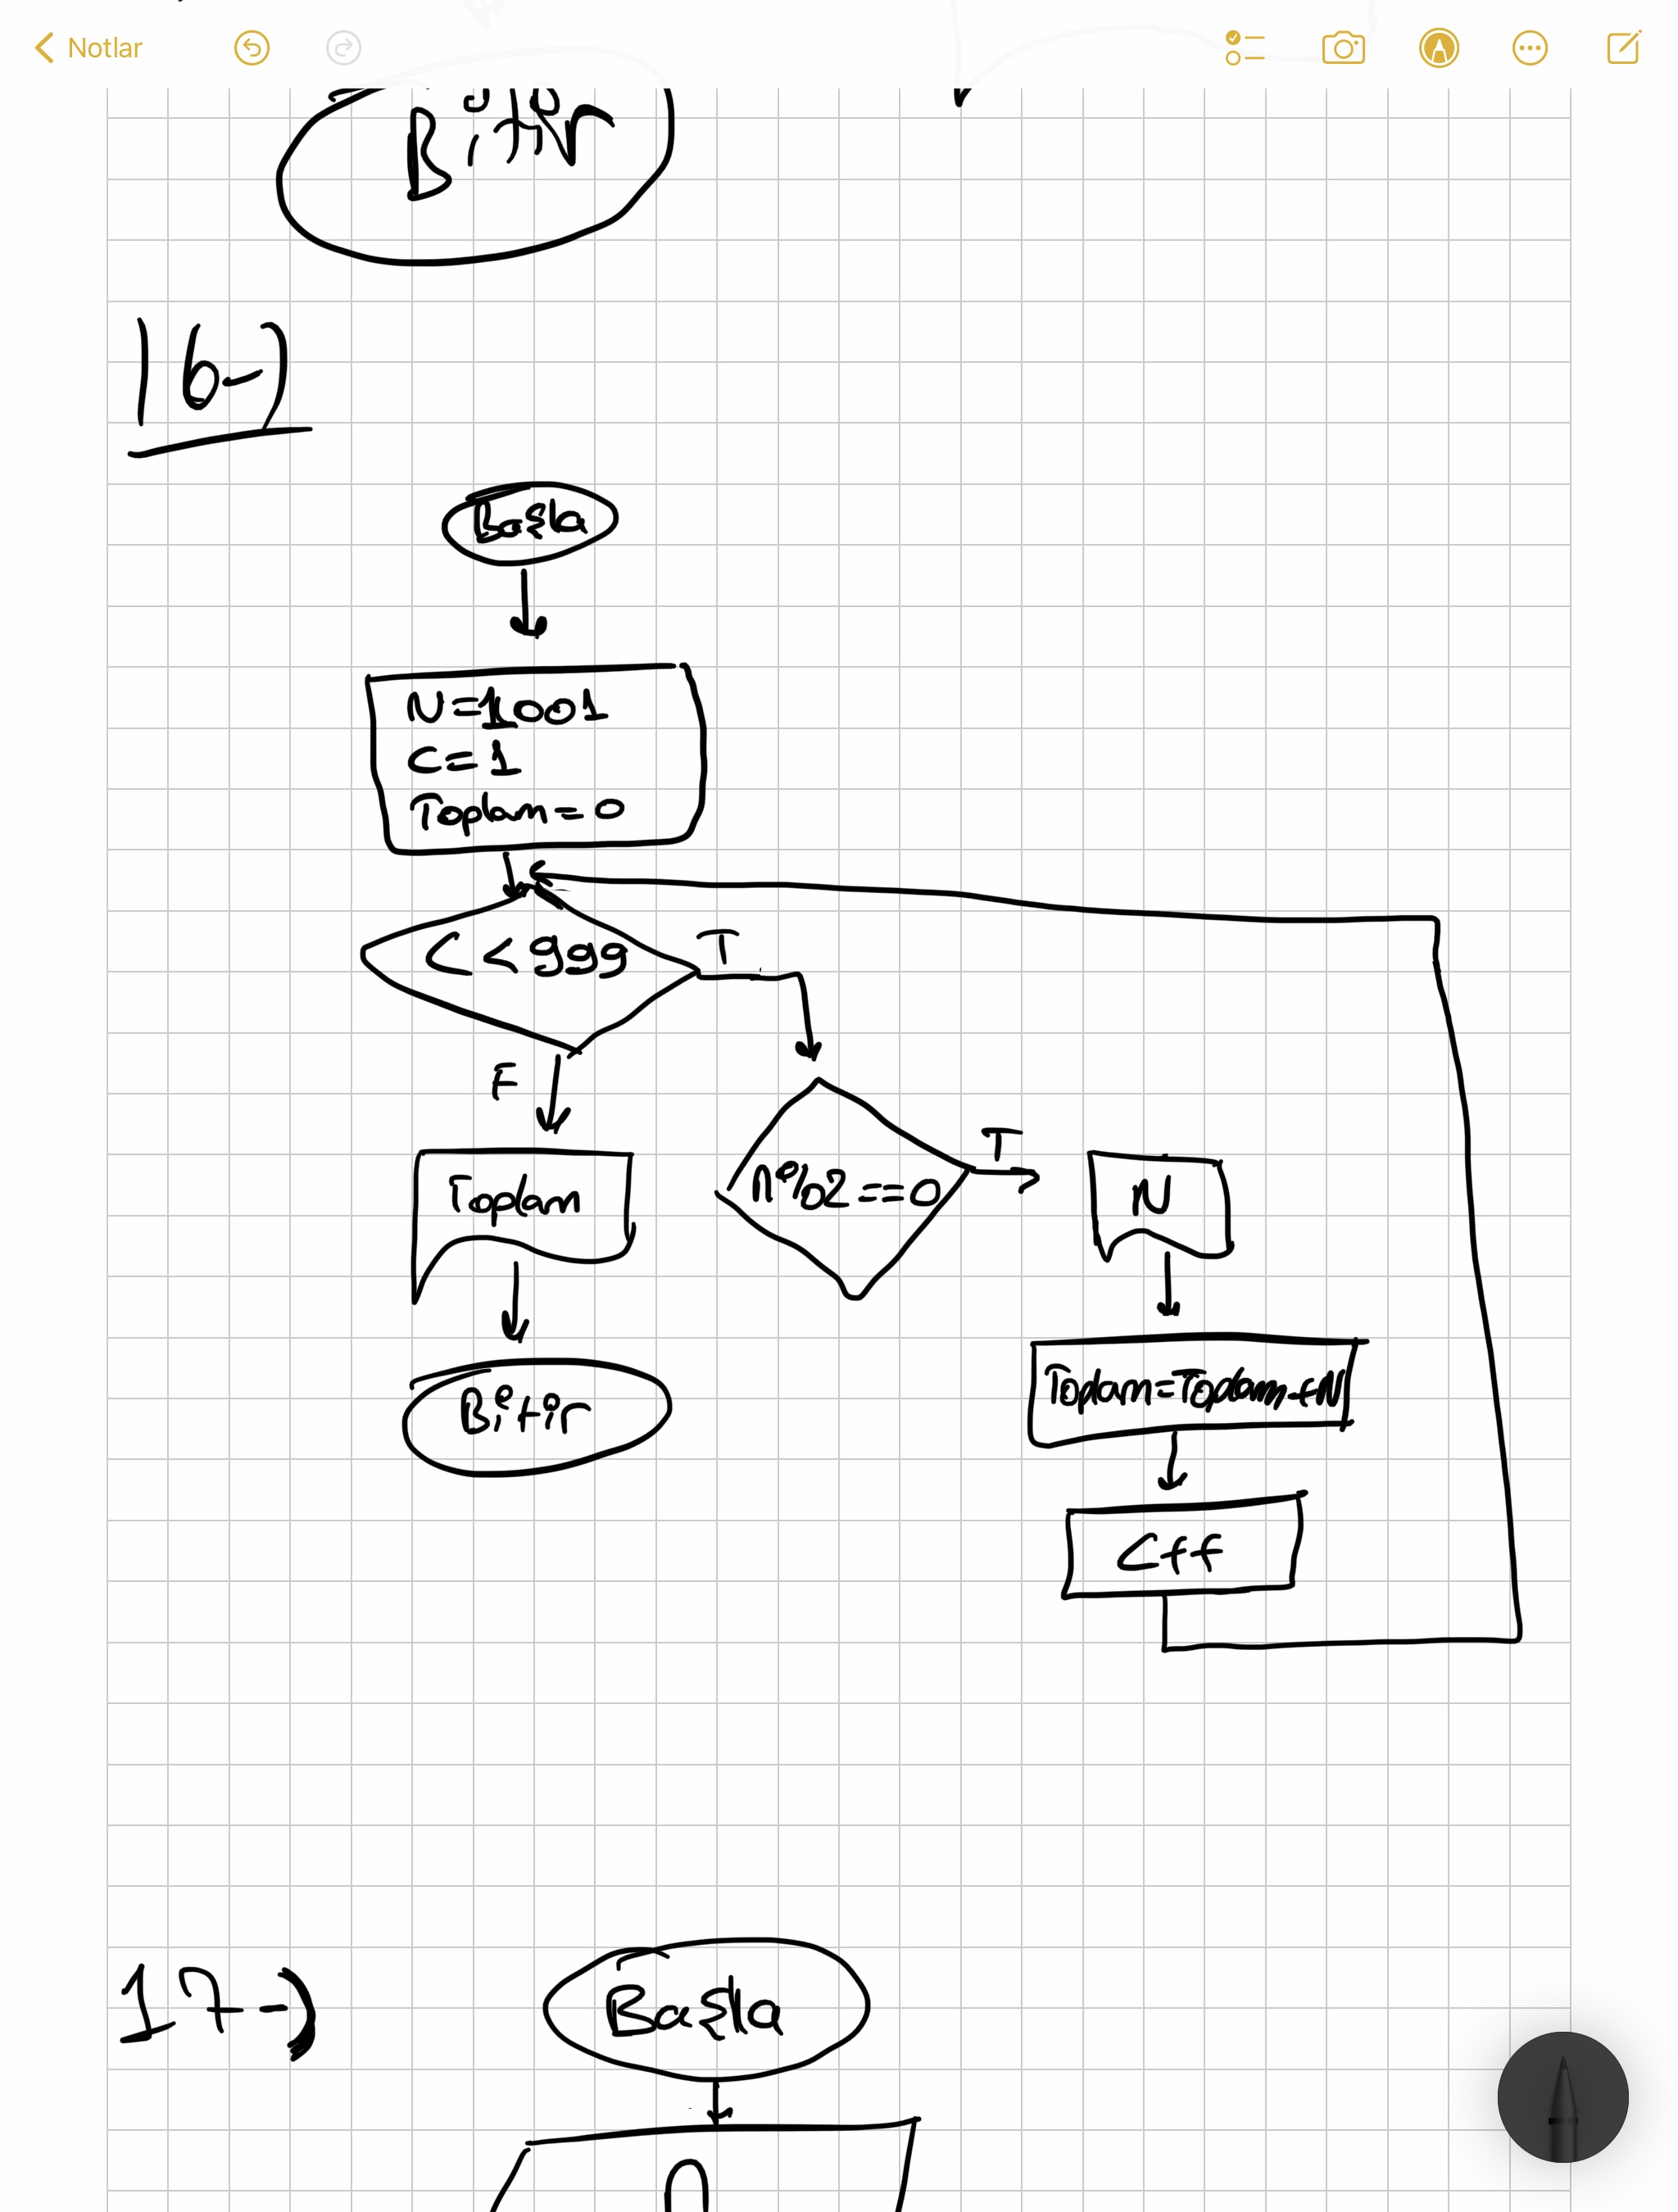 Notlar
Bitir
16-)
Başla
N=1001
C=1
Toplam=0
C < 999
T
F
n%2==0
T
Toplam
N
Bitir
Toplam=Toplam+N
C++
17-)
Başla
n